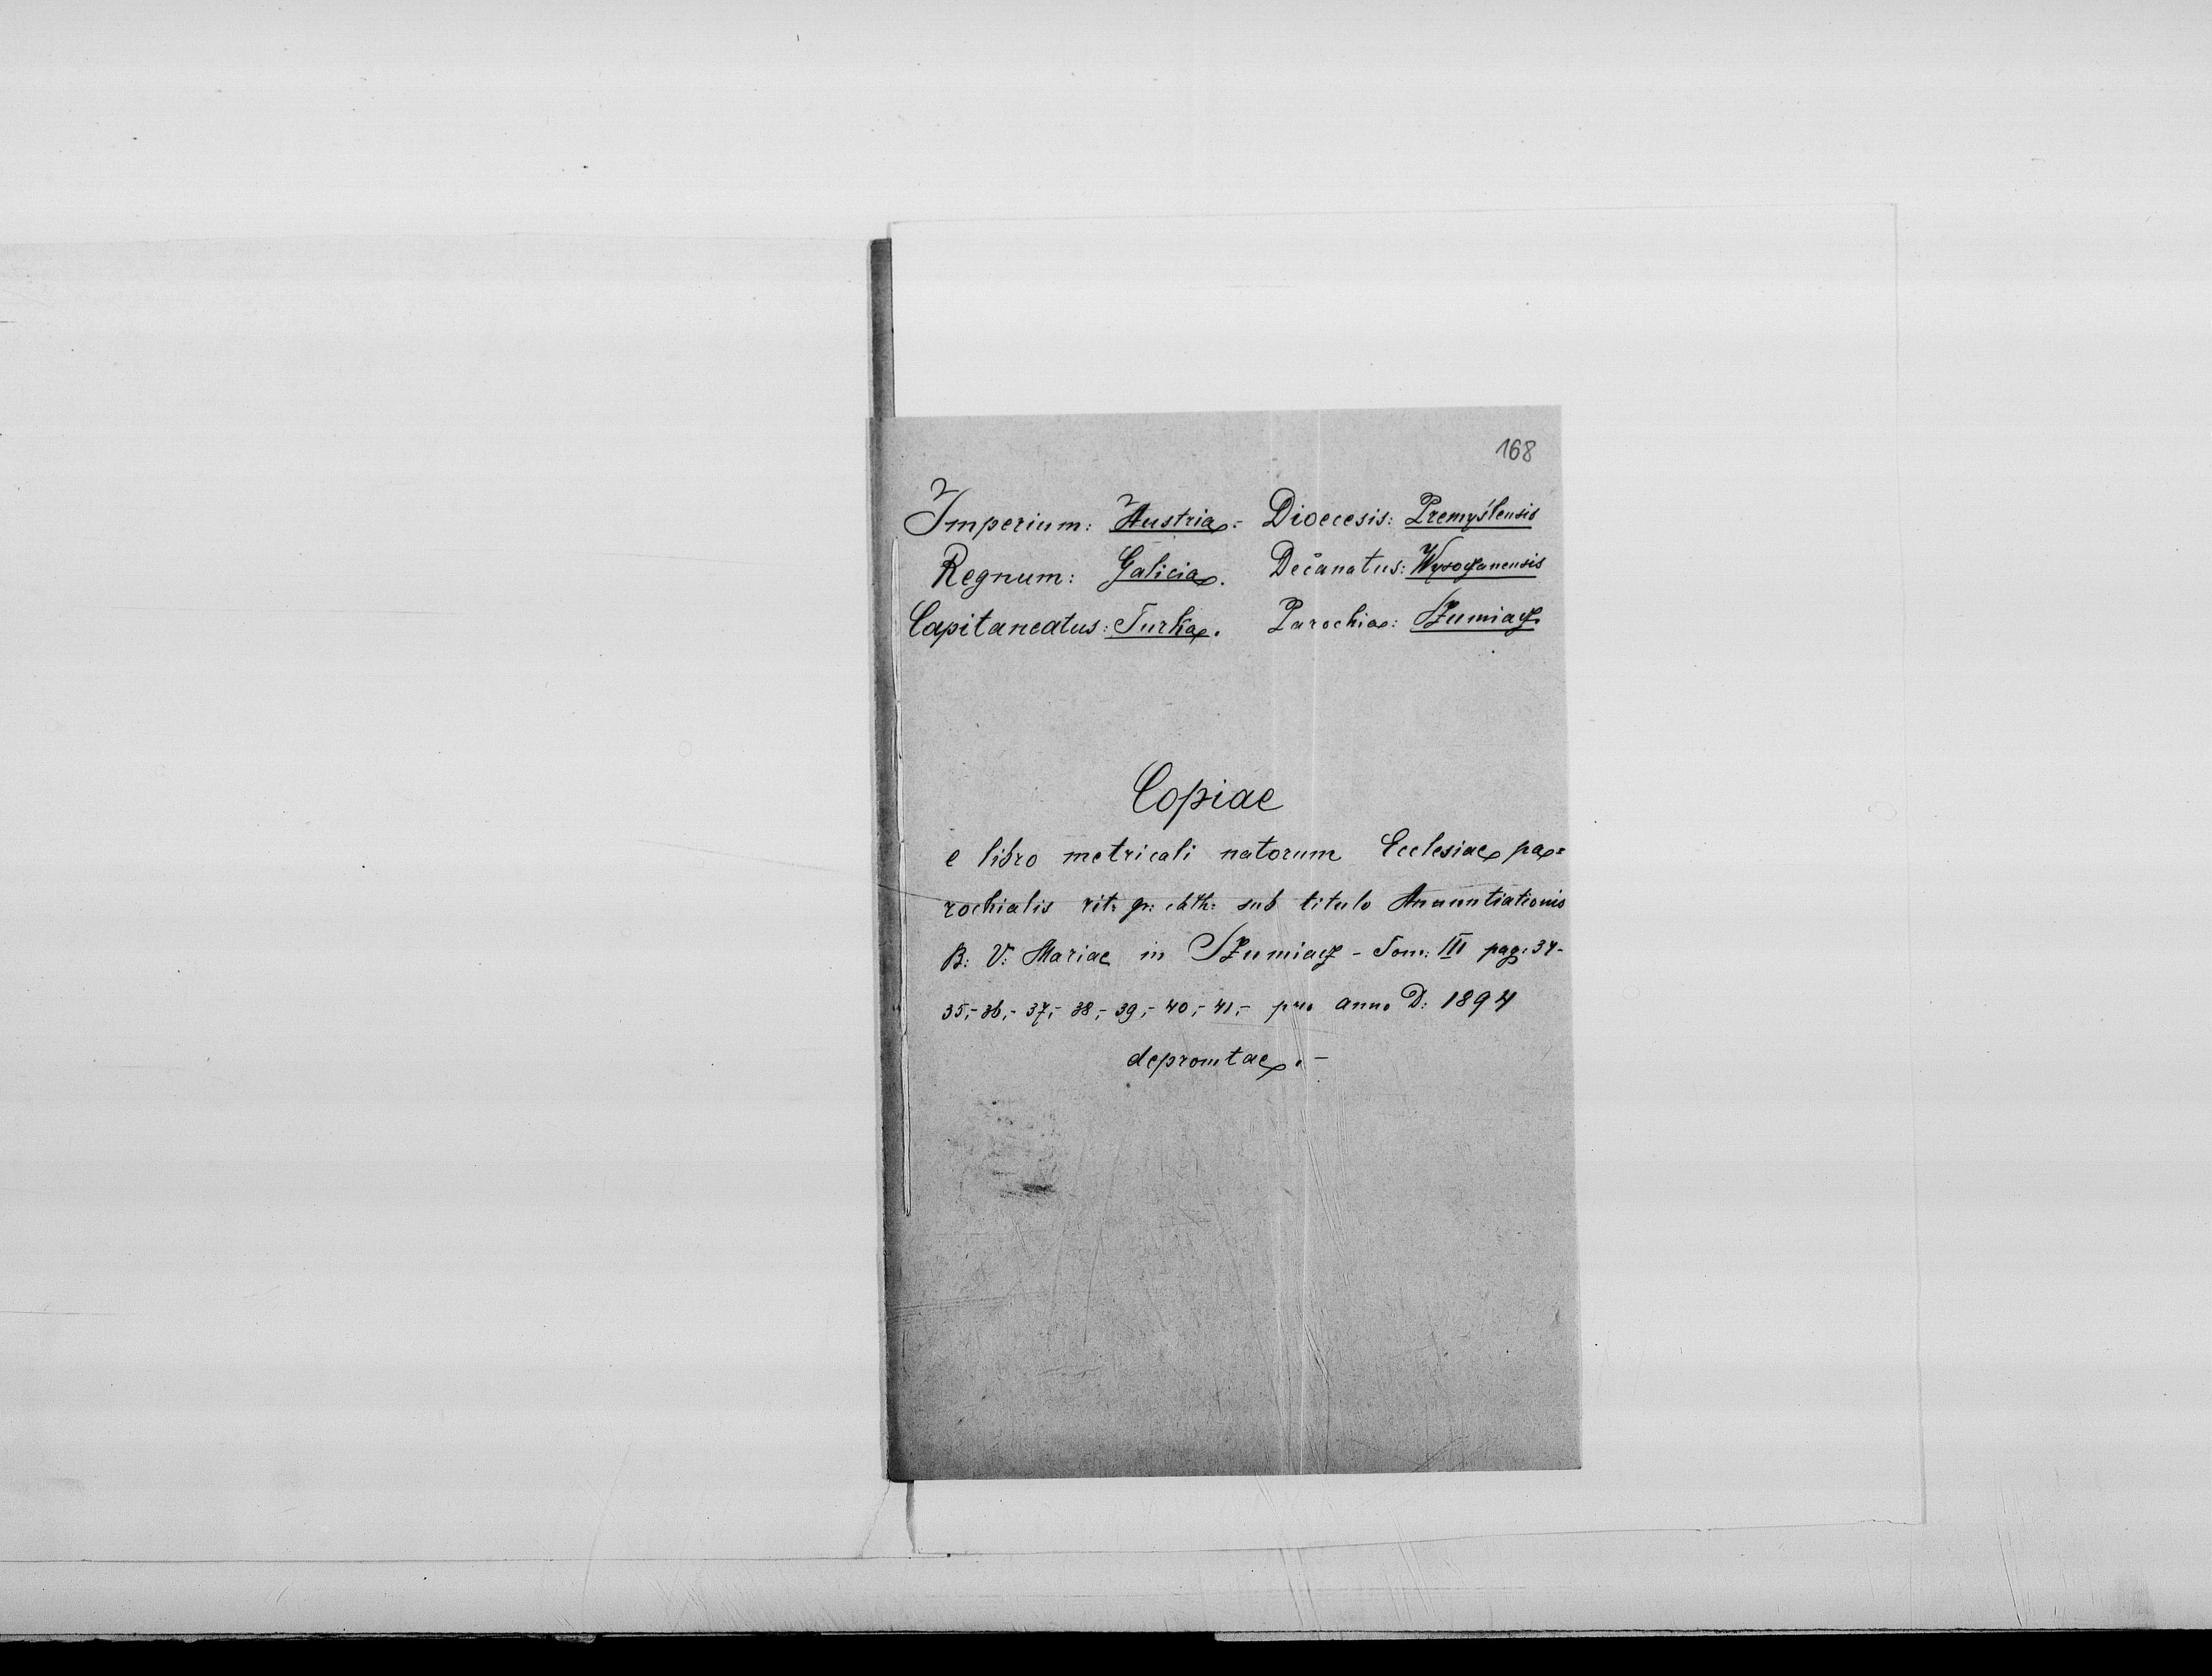 168
Imperium: Austria.- Dioecesis: Premyślensis
Regnum: Galicia. Decanatus: Wysoczanensis
Capitaneatus: Turka. Parochia: Szumiacz
Copiae
e libro metricali natorum Ecclesiae pa=
rochialis rit: gr: cath: sub titulo Anuntiationis
B: V: Mariae in Szumiacz - Tom: III pag: 34-
35,- 36,- 37,- 38,- 39,- 40,- 41,- pro anno D: 1894
depromtae.-